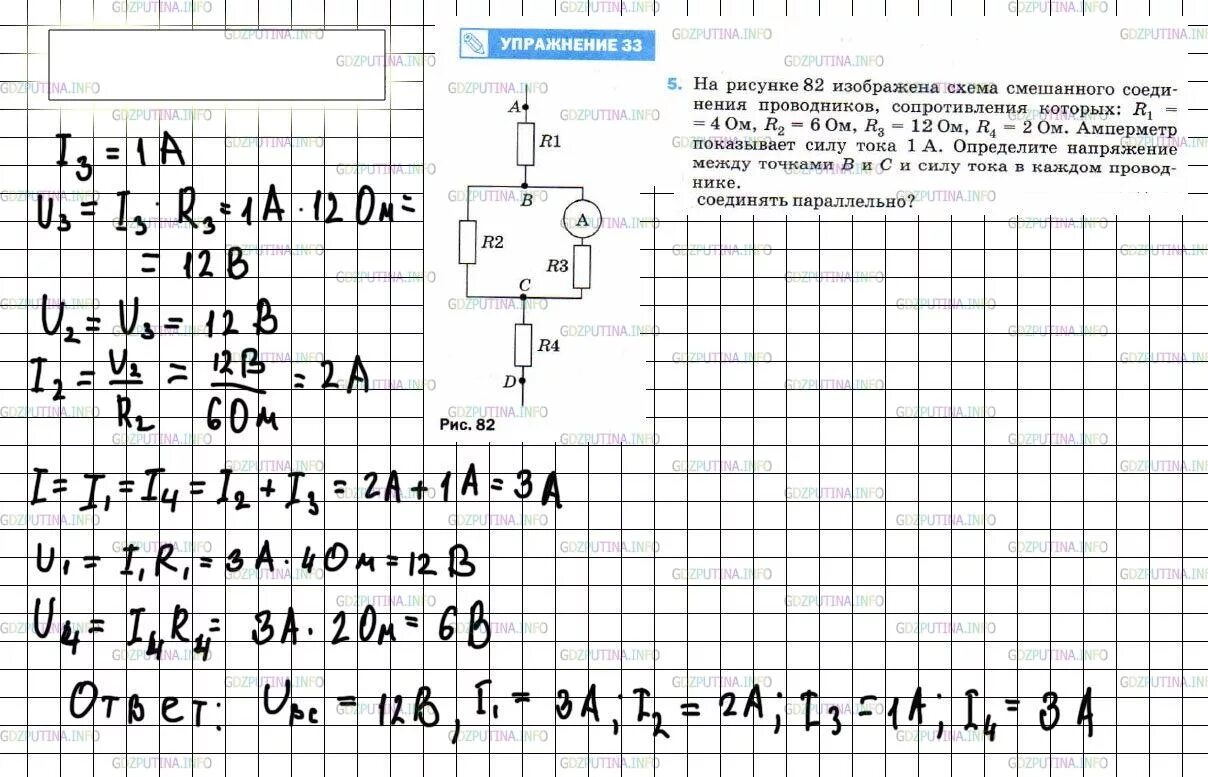 УПРАЖНЕНИЕ 33
5. На рисунке 82 изображена схема смешанного соеди-
нения проводников, сопротивления которых: R₁ =
= 4 Ом, R₂ = 6 Ом, R₃ = 12 Ом, R₄ = 2 Ом. Амперметр
показывает силу тока 1 А. Определите напряжение
между точками B и C и силу тока в каждом провод-
нике.
соединять параллельно?
A
R1
B
A
R2
R3
C
R4
D
Рис. 82
I₃ = 1 А
U₃ = I₃ · R₃ = 1 А · 12 Ом =
= 12 В
U₂ = U₃ = 12 В
I₂ = U₂/R₂ = 12 В/6 Ом = 2 А
I = I₁ = I₄ = I₂ + I₃ = 2А + 1 А = 3 А
U₁ = I₁R₁ = 3 А · 4 Ом = 12 В
U₄ = I₄R₄ = 3А · 2 Ом = 6 В
Ответ: Uвс = 12В, I₁ = 3А; I₂ = 2А; I₃ = 1А; I₄ = 3 А
GDZPUTINA.INFO